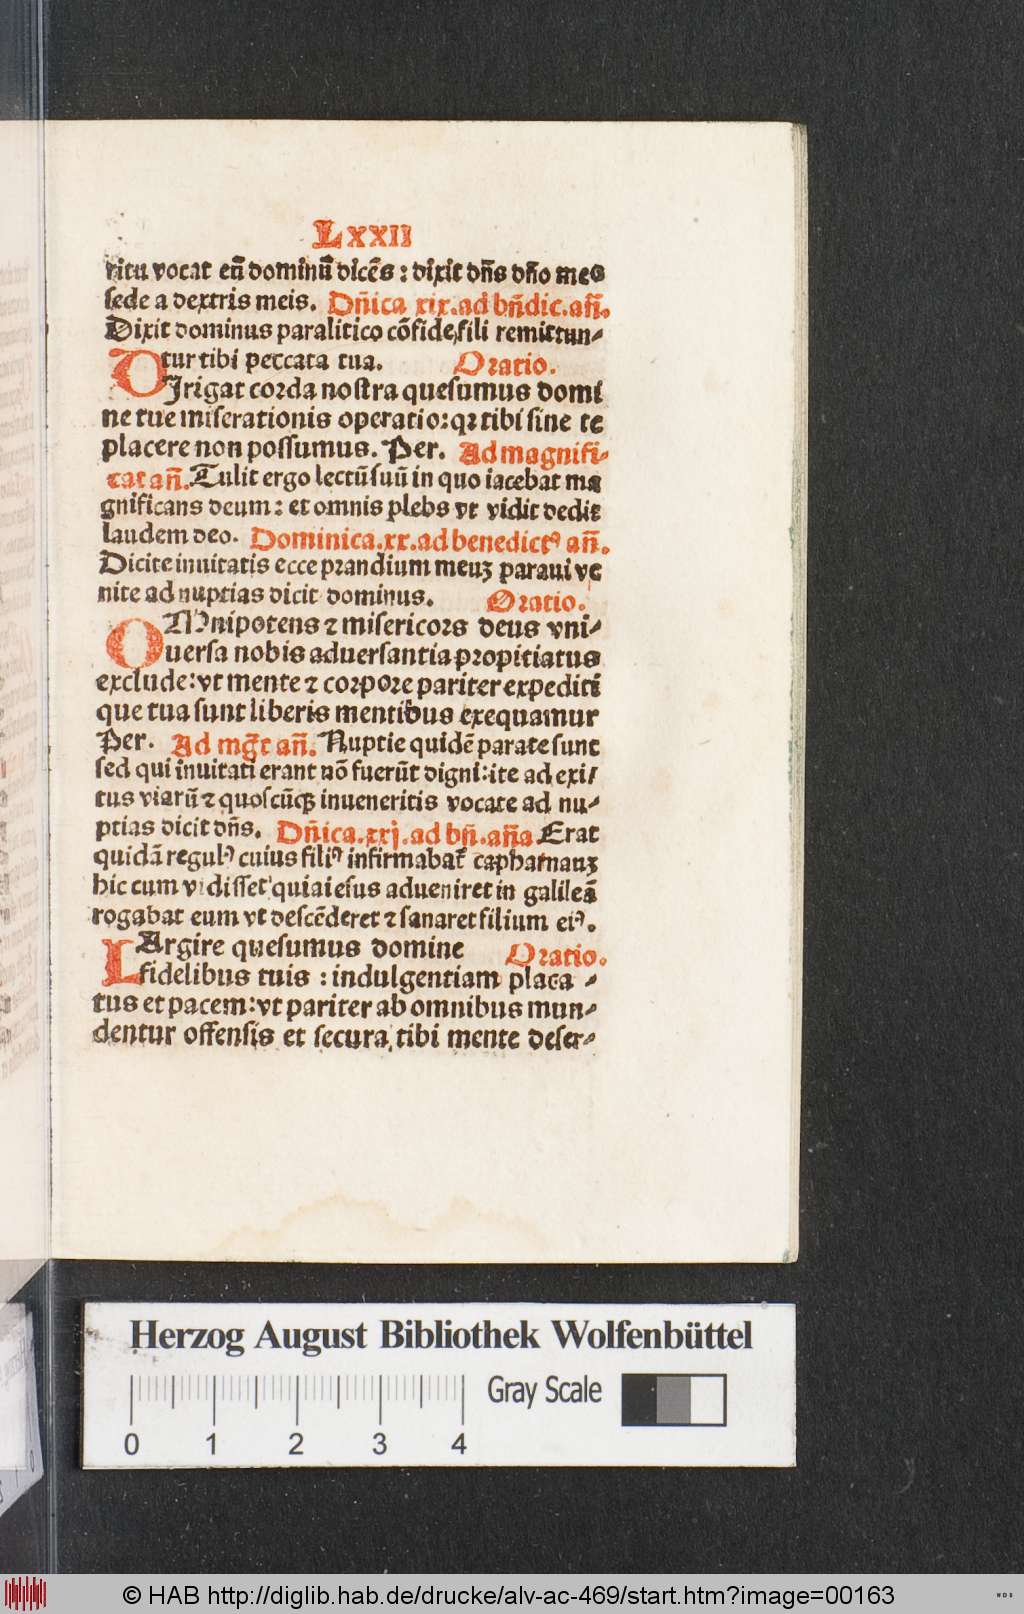 LXXII
ritu vocat eū dominū dicēs : dixit dn̄s dn̄o meo
sede a dextris meis. Dn̄ica xix. ad bn̄dic. an̄.
Dixit dominus paralitico cōfide, fili remittun⸗
tur tibi peccata tua. Oratio.
DIrigat corda nostra quesumus domi
ne tue miserationis operatio: qꝛ tibi sine te
placere non possumus. Per. Ad magnifi⸗
cat an̄. Tulit ergo lectū suū in quo iacebat ma
gnificans deum : et omnis plebs vt vidit dedit
laudem deo. Dominica. xx. ad benedictꝰ an̄.
Dicite inuitatis ecce prandium meuꝫ paraui ve
nite ad nuptias dicit dominus. Oratio.
OMnipotens ⁊ misericors deus vni⸗
uersa nobis aduersantia propitiatus
exclude: vt mente ⁊ corpore pariter expediti
que tua sunt liberis mentibus exequamur
Per. Ad mg̅t an̄. Nuptie quidē parate sunt
sed qui inuitati erant nō fuerūt digni: ite ad exi⸗
tus viarū ⁊ quoscūqꝫ inueneritis vocate ad nu⸗
ptias dicit dn̄s. Dn̄ica. xxj. ad bn̄. an̄a Erat
quidā regulꝰ cuius filiꝰ infirmabat̄ capharnauꝫ
hic cum vidisset quia iesus adueniret in galileā
rogabat eum vt descēderet ⁊ sanaret filium eiꝰ.
LArgire quesumus domine Oratio.
fidelibus tuis : indulgentiam placa ⸗
tus et pacem: vt pariter ab omnibus mun⸗
dentur offensis et secura tibi mente deser⸗
Herzog August Bibliothek Wolfenbüttel
Gray Scale
0 1 2 3 4
© HAB http://diglib.hab.de/drucke/alv-ac-469/start.htm?image=00163